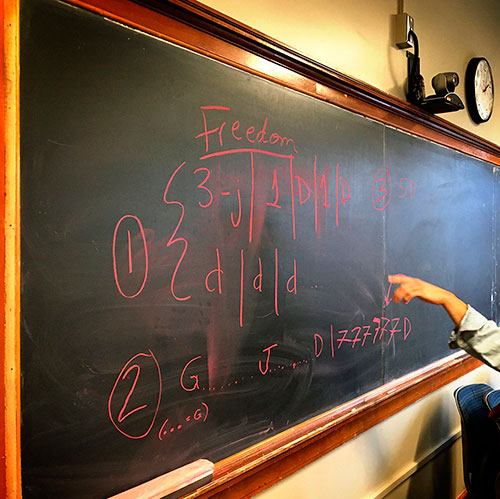 Freedom
① { 3-j | 1 | D | 1 | D ③ 5D
d | d | d ..
② G........ J........ D | 777777D
(...=G)